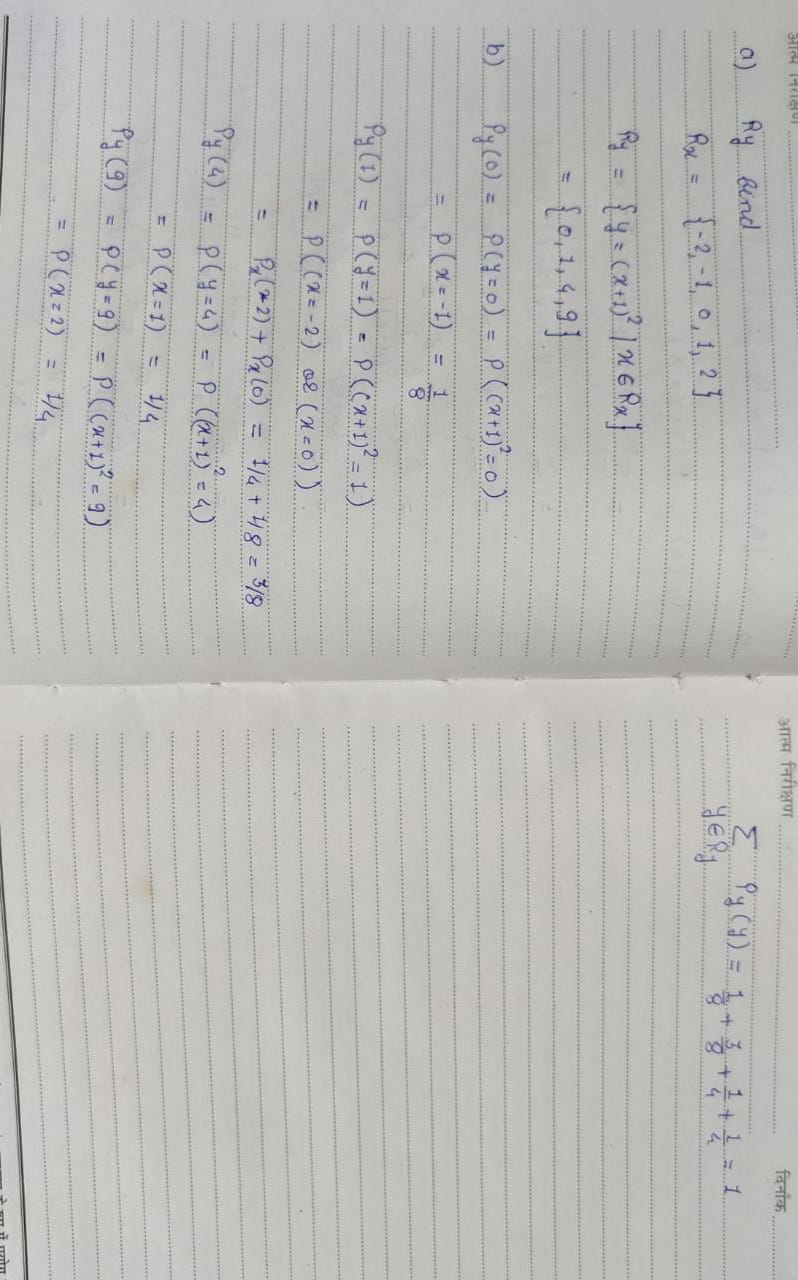 आत्म निरीक्षण
a) Ry find
Rx = {-2, -1, 0, 1, 2}
Ry = {y = (x+1)² | x ∈ Rx}
= {0, 1, 4, 9}
b) Py(0) = P(y=0) = P((x+1)²=0)
= P(x=-1) = 1/8
Py(1) = P(y=1) = P((x+1)²=1)
= P((x=-2) or (x=0))
= Px(-2) + Px(0) = 1/4 + 1/8 = 3/8
Py(4) = P(y=4) = P((x+1)²=4)
= P(x=1) = 1/4
Py(9) = P(y=9) = P((x+1)²=9)
= P(x=2) = 1/4
आत्म निरीक्षण दिनाँक
Σ Py(y) = 1/8 + 3/8 + 1/4 + 1/4 = 1
y∈Ry